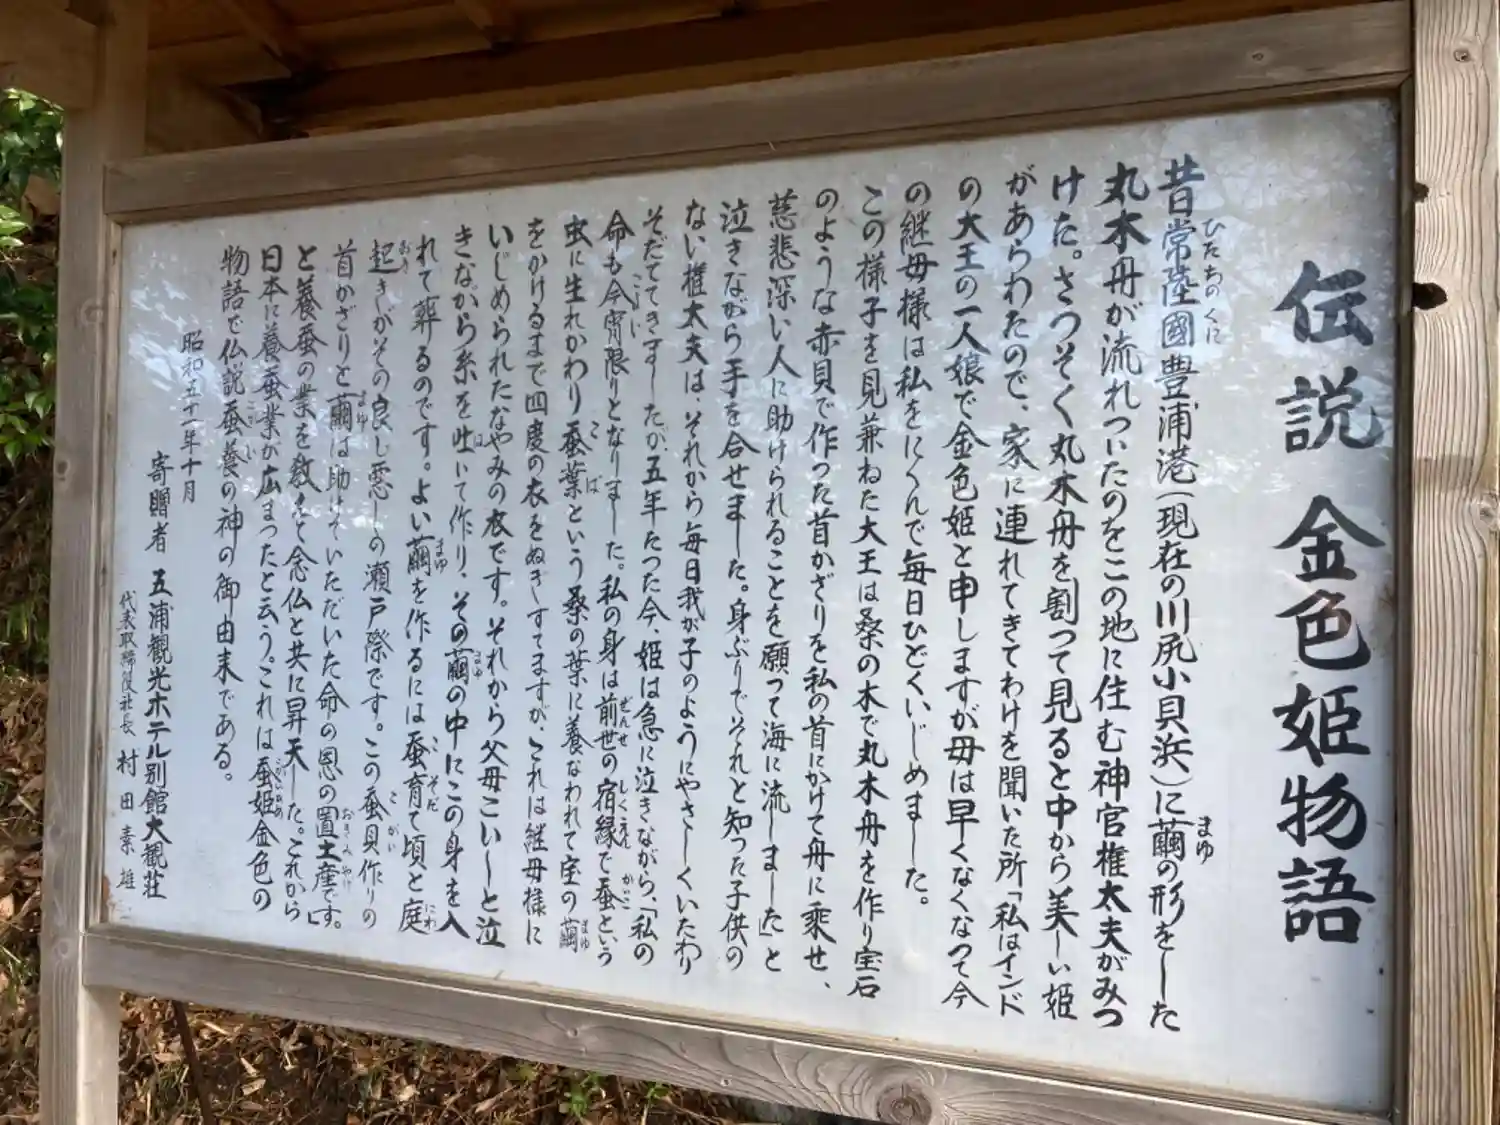 伝説 金色姫物語
昔常陸國豊浦港(現在の川尻小貝浜)に繭の形をした
ひたちのくに
まゆ
丸木舟が流れついたのをこの地に住む神官権太夫がみつ
けた。さつそく丸木舟を割つて見ると中から美しい姫
があらわたので、家に連れてきてわけを聞いた所「私はインド
の大王の一人娘で金色姫と申しますが母は早くなくなつて今
の継母様は私をにくんで毎日ひどくいじめました。
この様子を見兼ねた大王は桑の木で丸木舟を作り宝石
のような赤貝で作つた首かざりを私の首にかけて舟に乗せ、
慈悲深い人に助けられることを願つて海に流しました」と
泣きながら手を合せました。身ぶりでそれと知つた子供の
ない権太夫は、それから毎日我が子のようにやさしくいたわり
そだててきましたが、五年たつた今、姫は急に泣きながら、「私の
命も今宵限りとなりました。私の身は前世の宿縁で蚕という
こよい
ぜんせ
しくえん
かいこ
虫に生れかわり蚕葉という桑の葉に養なわれて宝の繭
こば
まゆ
をかけるまで四度の衣をぬぎすてますが、これは継母様に
いじめられたなやみの衣です。それから父母こいしと泣
きながら糸を吐いて作り、その繭の中にこの身を入
は
まゆ
れて葬るのです。よい繭を作るには蚕育て頃と庭
まゆ
こそだ
にわ
起きがその良し悪しの瀬戸際です。この蚕貝作りの
おき
こがい
首かざりと繭は助けていただいた命の恩の置土産です。」
まゆ
おきみやげ
と養蚕の業を教えて念仏と共に昇天した。これから
日本に養蚕業が広まつたと云う。これは蚕姫金色の
物語で仏説蚕養の神の御由来である。
こがい
昭和五十一年十月
寄贈者 五浦観光ホテル別館大観荘
代表取締役社長 村田素雄